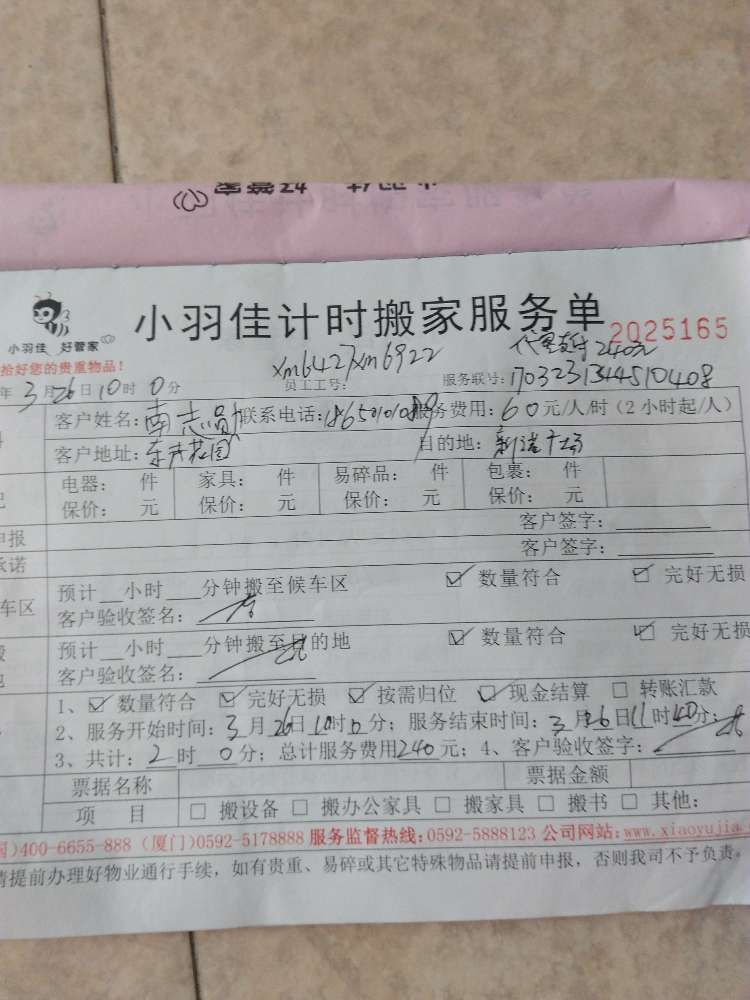 小羽佳计时搬家服务单
2025165
小羽佳 好管家
拾好您的贵重物品!
代里支付240元
xm6427xm6922
年3月26日10时0分 员工工号: 服务联号:1703231344510408
客户姓名:南志勋 联系电话: 服务费用:60元/人/时(2小时起/人)
客户地址:东方花园 目的地:
电器: 件 家具: 件 易碎品: 件 包裹: 件
保价: 元 保价: 元 保价: 元 保价: 元
申报 客户签字:
承诺 客户签字:
预计__小时___分钟搬至候车区 ☑数量符合 ☑完好无损
车区 客户验收签名:
预计__小时___分钟搬至目的地 ☑数量符合 ☑完好无损
客户验收签名:
1、☑数量符合 ☑完好无损 ☑按需归位 ☑现金结算 □转账汇款
2、服务开始时间:3月26日10时0分;服务结束时间:3月26日11时40分;
3、共计:2时0分;总计服务费用240元;4、客户验收签字:
票据名称 票据金额
项 目 □搬设备 □搬办公家具 □搬家具 □搬书 □其他:
国)400-6655-888(厦门)0592-5178888 服务监督热线:0592-5888123 公司网站:www.xiaoyujia.
请提前办理好物业通行手续,如有贵重、易碎或其它特殊物品请提前申报,否则我司不予负责。